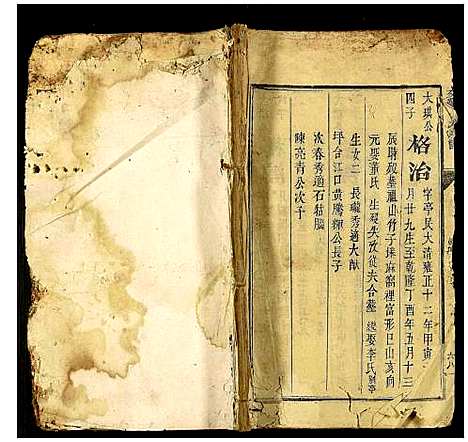 大珙公
四子
格治
字亭民大清雍正十二年甲寅
月廿九生至乾隆丁酉年五月十三
辰時歿墓祖山竹子垛麻窩裡富形巳山亥向
元娶董氏 生歿失攷從夫合塟 繼娶李氏
生女二 長瓏秀適大猷
坪合江口黃鷹輝公長子
次春秀適石牯腦
陳亮青公次子